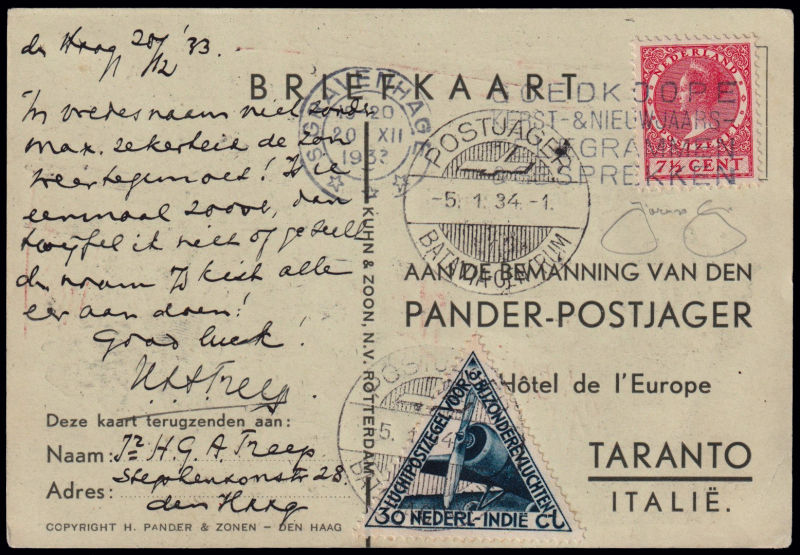 den Haag 20/12 '33.
BRIEFKAART
In vredesnaam niet zonder
max. zekerheid de zon
weer tegemoet! Is ie
eenmaal zoover, dan
twijfel ik niet of gezult
den naam Ijskist alle
eer aan doen!
Good luck!
H.A. Treep.
Deze kaart terugzenden aan:
Naam: Jr H.G.A. Treep
Adres: Stephensonstr 28
den Haag
COPYRIGHT H. PANDER & ZONEN - DEN HAAG
KUHN & ZOON, N.V. ROTTERDAM
'S GRAVENHAGE
19-20
20 XII
1933
GOEDKOOPE
KERST- & NIEUWJAARS-
NEDERLAND
7½ CENT
POSTJAGER
-5.1.34.-1.
BATAVIA CENTRUM
AAN DE BEMANNING VAN DEN
PANDER-POSTJAGER
Hôtel de l'Europe
TARANTO
ITALIË.
LUCHTPOSTZEGEL VOOR BIJZONDERE VLUCHTEN
30 NEDERL-INDIË CT